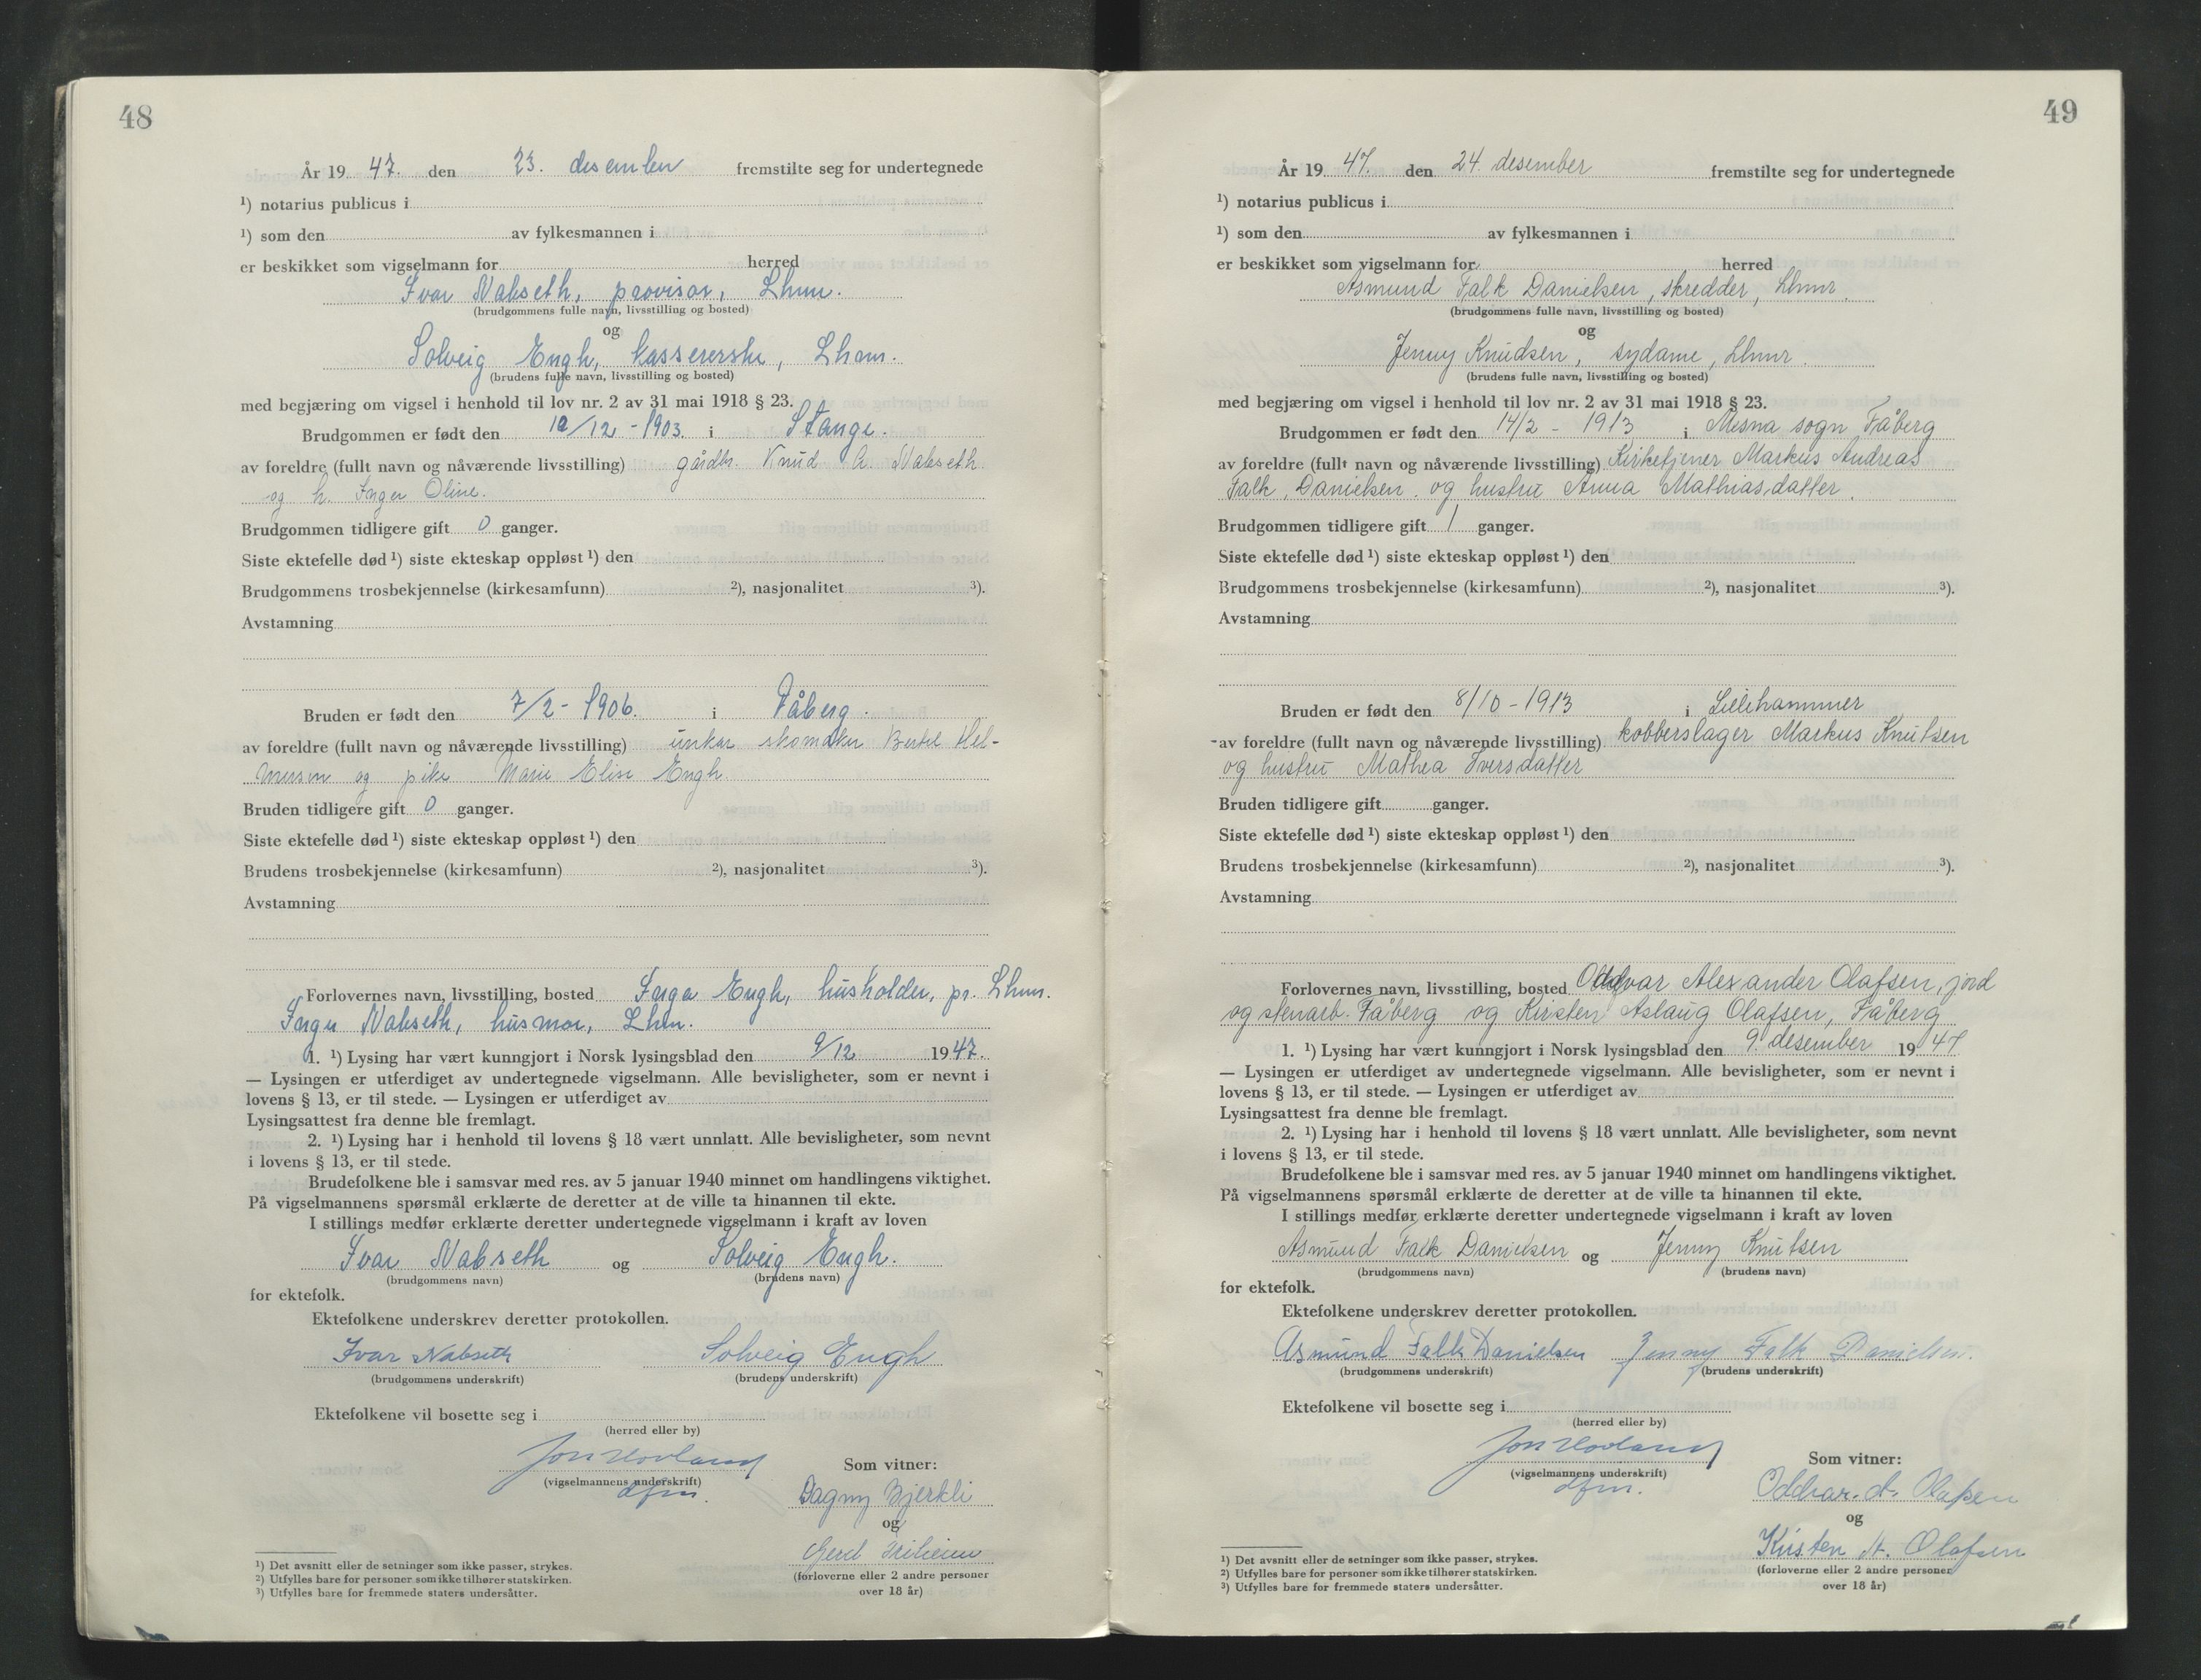 48
År 19 47. den 23. desember fremstilte seg for undertegnede
¹) notarius publicus i
¹) som den av fylkesmannen i
er beskikket som vigselmann for herred
Ivar Nabseth, provisor, Lhmr.
(brudgommens fulle navn, livsstilling og bosted)
og
Solveig Engh, kassererske, Lham.
(brudens fulle navn, livsstilling og bosted)
med begjæring om vigsel i henhold til lov nr. 2 av 31 mai 1918 § 23.
Brudgommen er født den /12 - 1903. i Stange.
av foreldre (fullt navn og nåværende livsstilling) gårdbr. Knud A. Nabseth
og h. Inger Oline.
Brudgommen tidligere gift 0 ganger.
Siste ektefelle død ¹) siste ekteskap oppløst ¹) den
Brudgommens trosbekjennelse (kirkesamfunn) ²), nasjonalitet ³).
Avstamning
Bruden er født den 7/2 - 1906. i Fåberg.
av foreldre (fullt navn og nåværende livsstilling) unkar skomaker Bertel Hel-
mersen og pike Marie Elise Engh
Bruden tidligere gift 0 ganger.
Siste ektefelle død ¹) siste ekteskap oppløst ¹) den
Brudens trosbekjennelse (kirkesamfunn) ²), nasjonalitet ³).
Avstamning
Forlovernes navn, livsstilling, bosted Inga Engh, husholder, pr. Lhmr.
Inger Nabseth, husmor, Lhm.
1. ¹) Lysing har vært kunngjort i Norsk lysingsblad den 9/12 1947.
— Lysingen er utferdiget av undertegnede vigselmann. Alle bevisligheter, som er nevnt i
lovens § 13, er til stede. — Lysingen er utferdiget av
Lysingsattest fra denne ble fremlagt.
2. ¹) Lysing har i henhold til lovens § 18 vært unnlatt. Alle bevisligheter, som nevnt
i lovens § 13, er til stede.
Brudefolkene ble i samsvar med res. av 5 januar 1940 minnet om handlingens viktighet.
På vigselmannens spørsmål erklærte de deretter at de ville ta hinannen til ekte.
I stillings medfør erklærte deretter undertegnede vigselmann i kraft av loven
Ivar Nabseth og Solveig Engh.
(brudgommens navn) (brudens navn)
for ektefolk.
Ektefolkene underskrev deretter protokollen.
Ivar Nabseth Solveig Engh
(brudgommens underskrift) (brudens underskrift)
Ektefolkene vil bosette seg i
(herred eller by)
Jon Hovland
(vigselmannens underskrift)
dfm.
Som vitner:
Dagny Bjerkli
og
Gerd
(forloverne eller 2 andre personer
over 18 år)
¹) Det avsnitt eller de setninger som ikke passer, strykes.
²) Utfylles bare for personer som ikke tilhører statskirken.
³) Utfylles bare for fremmede staters undersåtter.
49
År 19 47. den 24. desember fremstilte seg for undertegnede
¹) notarius publicus i
¹) som den av fylkesmannen i
er beskikket som vigselmann for herred
Asmund Falk Danielsen, skredder, Lhmr.
(brudgommens fulle navn, livsstilling og bosted)
og
Jenny Knudsen, sydame, Lhmr.
(brudens fulle navn, livsstilling og bosted)
med begjæring om vigsel i henhold til lov nr. 2 av 31 mai 1918 § 23.
Brudgommen er født den 14/2 - 1913 i Mesna sogn Fåberg
av foreldre (fullt navn og nåværende livsstilling) Kirketjener Markus Andreas
Falk Danielsen og hustru Anna Mathiasdatter.
Brudgommen tidligere gift 1 ganger.
Siste ektefelle død ¹) siste ekteskap oppløst ¹) den
Brudgommens trosbekjennelse (kirkesamfunn) ²), nasjonalitet ³).
Avstamning
Bruden er født den 8/10 - 1913 i Lillehammer
av foreldre (fullt navn og nåværende livsstilling) kobberslager Markus Knutsen
og hustru Mathea Iversdatter
Bruden tidligere gift ganger.
Siste ektefelle død ¹) siste ekteskap oppløst ¹) den
Brudens trosbekjennelse (kirkesamfunn) ²), nasjonalitet ³).
Avstamning
Forlovernes navn, livsstilling, bosted Oddvar Alexander Olafsen, jord
og stenarb. Fåberg og Kirsten Aslaug Olafsen, Fåberg
1. ¹) Lysing har vært kunngjort i Norsk lysingsblad den 9. desember 1947
— Lysingen er utferdiget av undertegnede vigselmann. Alle bevisligheter, som er nevnt i
lovens § 13, er til stede. — Lysingen er utferdiget av
Lysingsattest fra denne ble fremlagt.
2. ¹) Lysing har i henhold til lovens § 18 vært unnlatt. Alle bevisligheter, som nevnt
i lovens § 13, er til stede.
Brudefolkene ble i samsvar med res. av 5 januar 1940 minnet om handlingens viktighet.
På vigselmannens spørsmål erklærte de deretter at de ville ta hinannen til ekte.
I stillings medfør erklærte deretter undertegnede vigselmann i kraft av loven
Asmund Falk Danielsen og Jenny Knutsen
(brudgommens navn) (brudens navn)
for ektefolk.
Ektefolkene underskrev deretter protokollen.
Asmund Falk Danielsen Jenny Falk Danielsen.
(brudgommens underskrift) (brudens underskrift)
Ektefolkene vil bosette seg i
(herred eller by)
Jon Hovland
(vigselmannens underskrift)
dfm.
Som vitner:
Oddvar. A. Olafsen
og
Kirsten A. Olafsen
(forloverne eller 2 andre personer
over 18 år)
¹) Det avsnitt eller de setninger som ikke passer, strykes.
²) Utfylles bare for personer som ikke tilhører statskirken.
³) Utfylles bare for fremmede staters undersåtter.